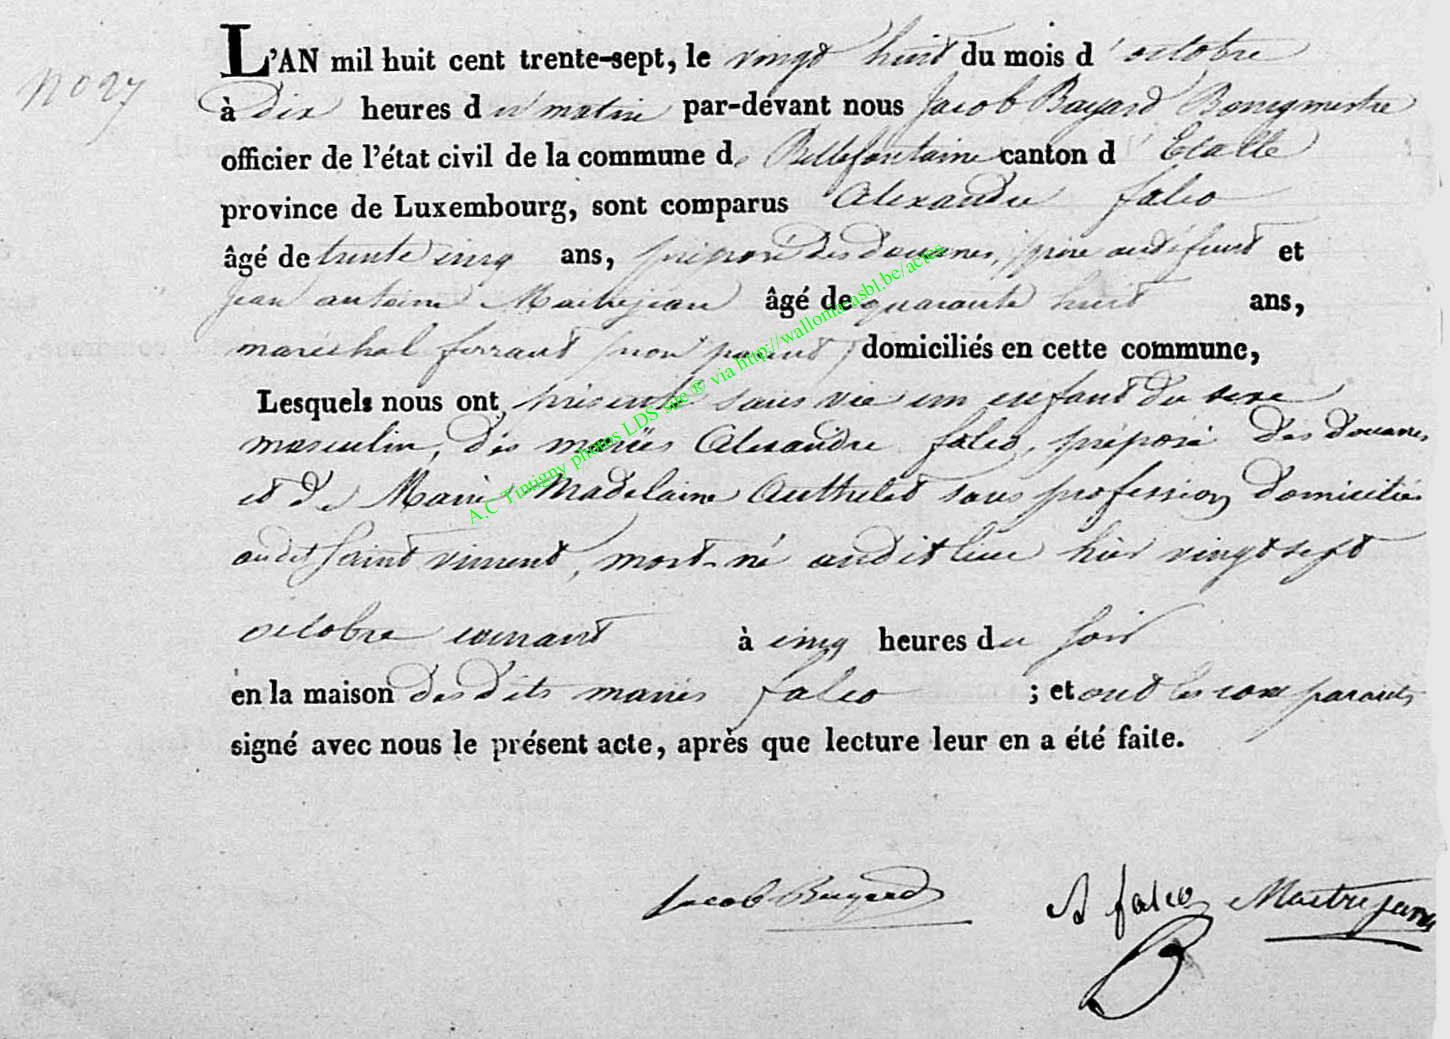 N° 27
L'AN mil huit cent trente-sept, le vingt huit du mois d'octobre
à dix heures du matin par-devant nous Jacob Bayard Bourgmestre
officier de l'état civil de la commune de Bellefontaine canton d'Etalle
province de Luxembourg, sont comparus Alexandre falco
âgé de trente cinq ans, préposé des douanes, père au défunt et
Jean antoine Maitrejean âgé de quarante huit ans,
maréchal ferrant (non parent) domiciliés en cette commune,
Lesquels nous ont présenté sans vie un enfant du sexe
masculin, des mariés Alexandre falco, préposé des douanes
et de Marie Madelaine Authelet sans profession domiciliés
audit Saint vincent, mort-né audit lieu hier vingt sept
octobre courant à cinq heures du soir
en la maison des dits mariés falco ; et ont les comparants
signé avec nous le présent acte, après que lecture leur en a été faite.
Jacob Bayard A falco Maitrejean
A.C Tintigny photos LDS site ® via http://wallonia.asbl.be/actes